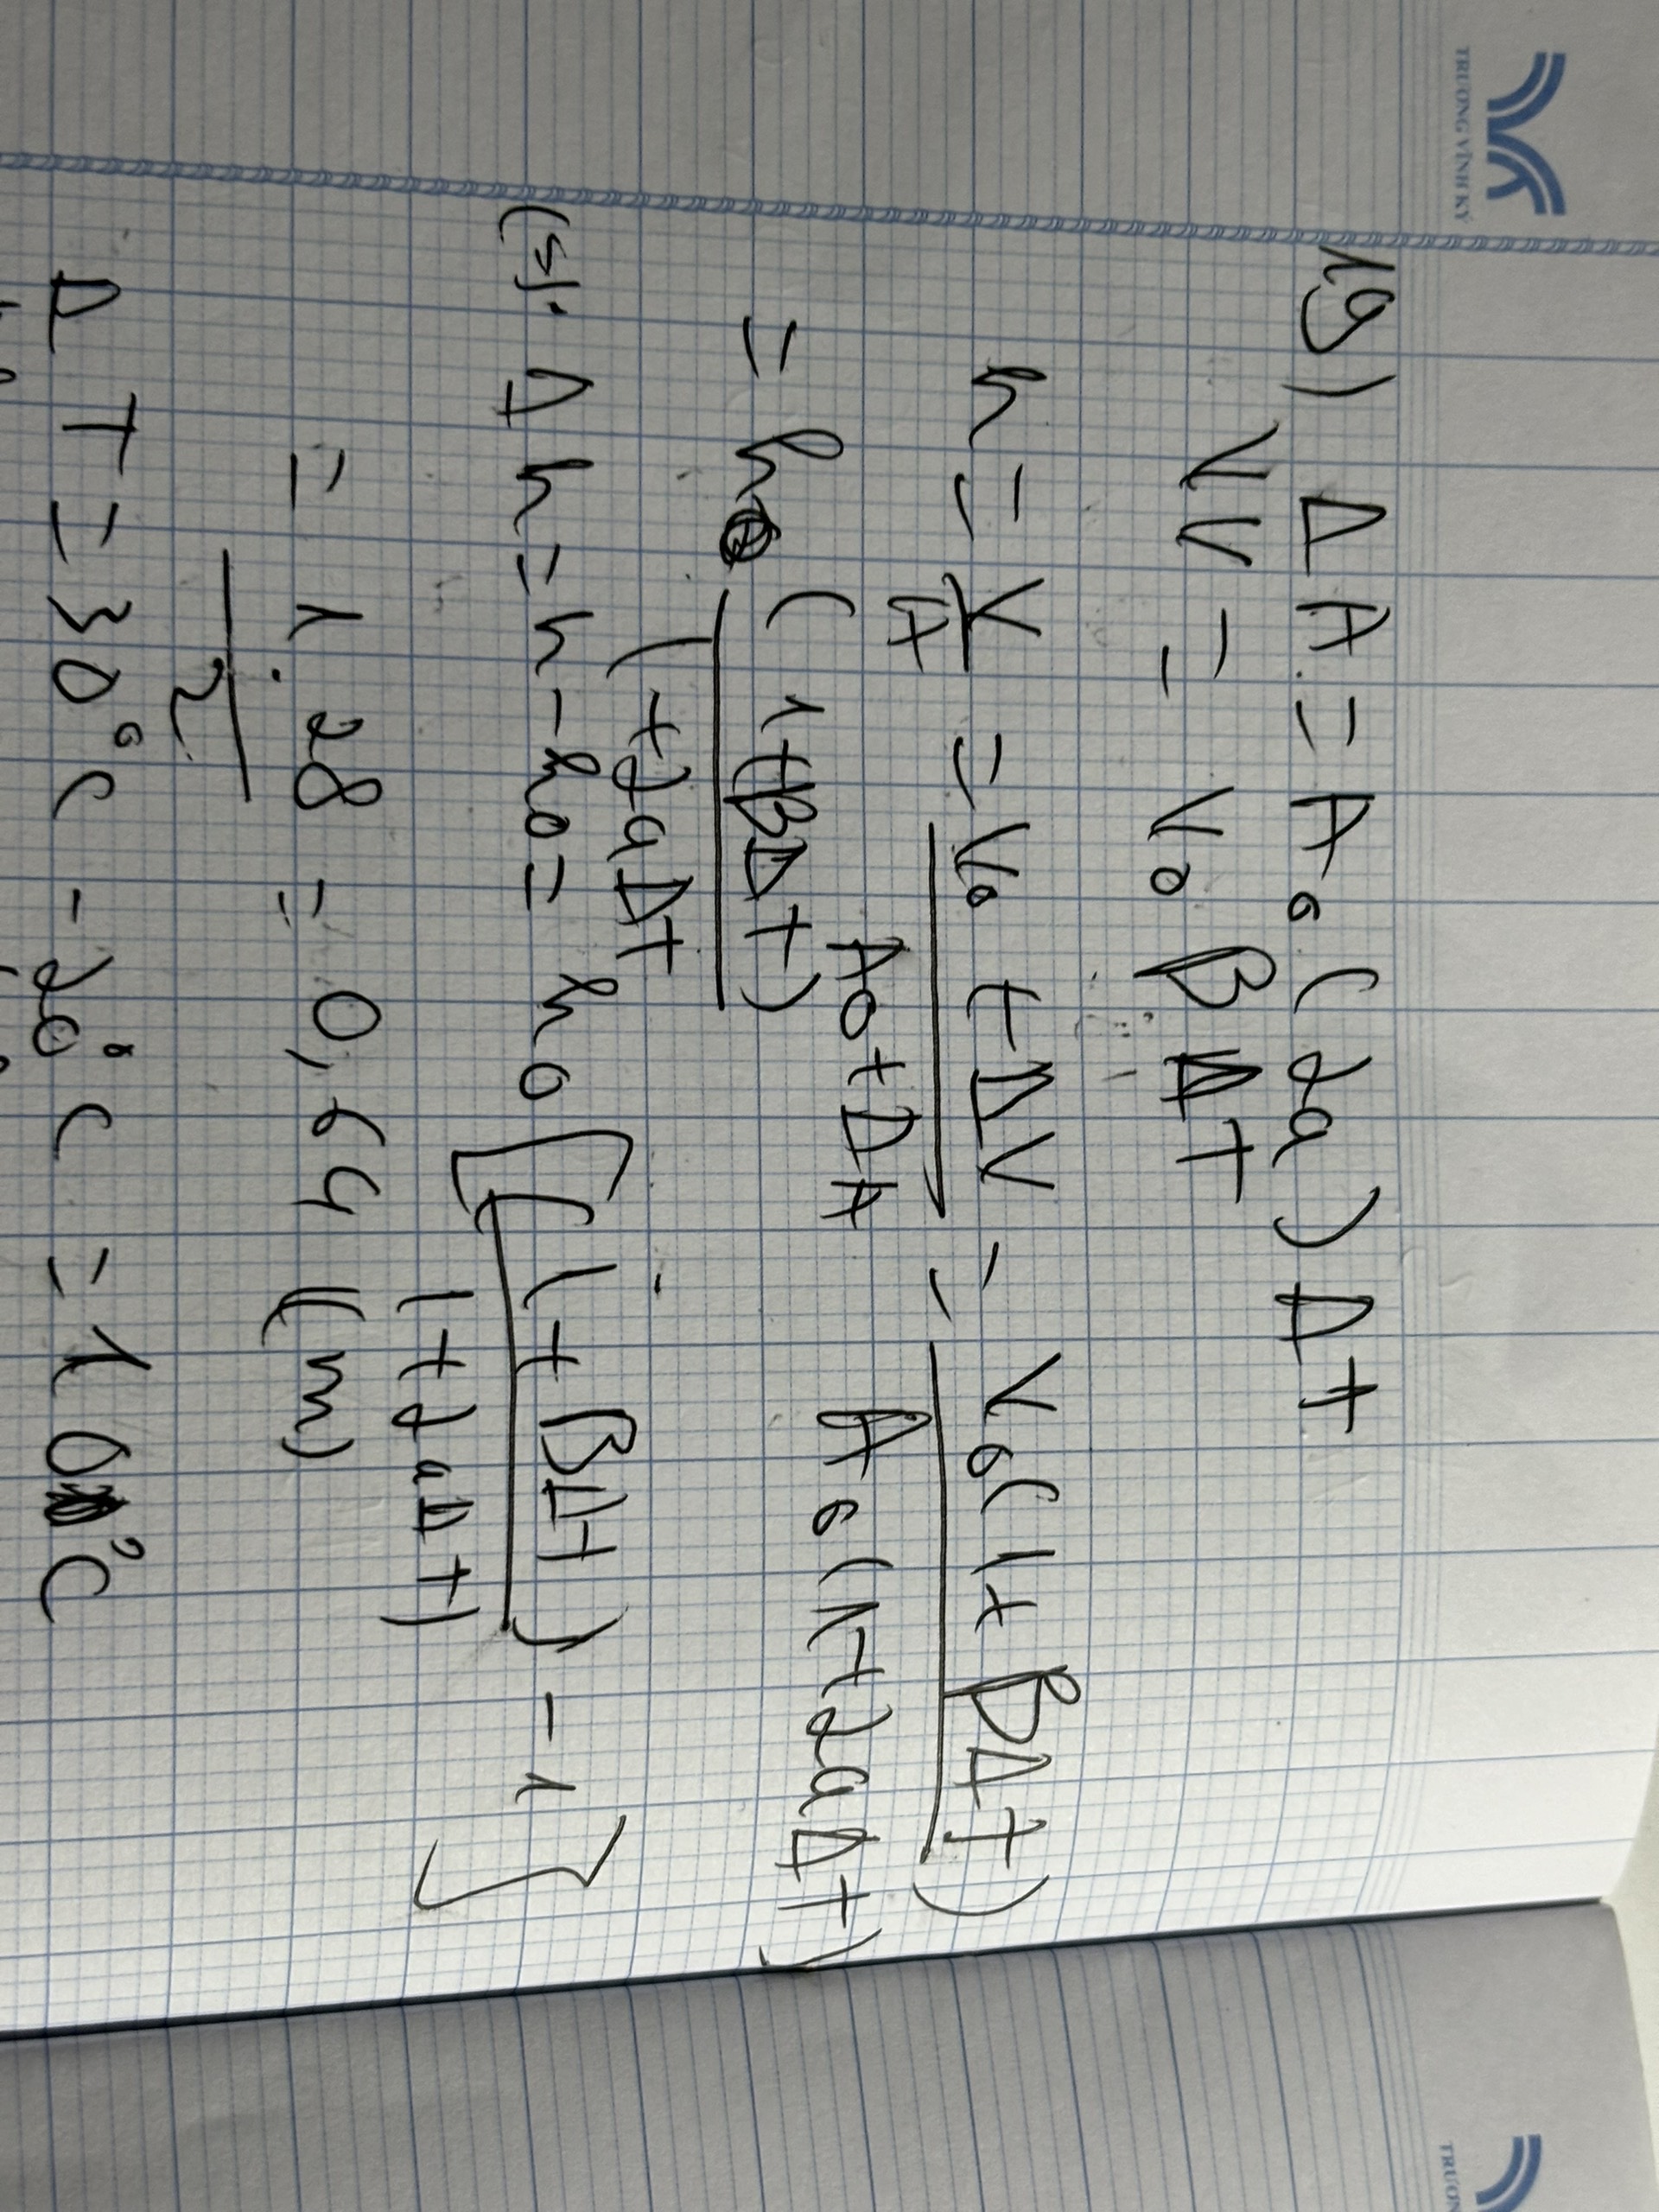 TRƯƠNG VĨNH KÝ
19) ΔA = A₀(2a)Δt
VV = V₀βΔT
h = V/A = (V₀+ΔV)/(A₀+ΔA) = V₀(1+βΔt)/A₀(1+2aΔt)
= h₀ (1+βΔt)/(1+2aΔt
(s). Δh = h-h₀ = h₀[(1+βΔt)/(1+2aΔt) - 1]
= 1.28/2 = 0,64 (m)
ΔT = 30°C - 20°C = 10°C